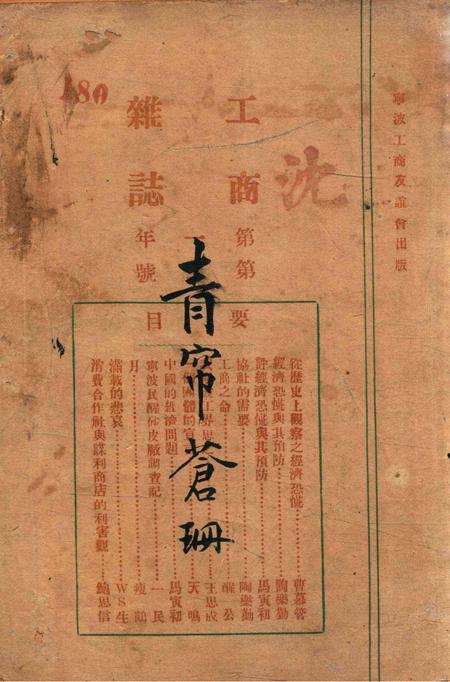 寧波工商友誼會出版
沈
工商雜誌
第 年
第 號
要目
從歷史上觀察之經濟恐慌 曹慕管
經濟恐慌與其預防 陶樂勤
評經濟恐慌與其預防 馬寅初
協社的需要 陶樂勤
工商之命 醒公
王思成
天鳴
中國的經濟問題 馬寅初
寧波民醒砩皮廠調查記 一民
月 瘦鶴
滿載的悲哀 WS生
消費合作社與謀利商店的利害觀 鮑思信
青帘蒼珊
480